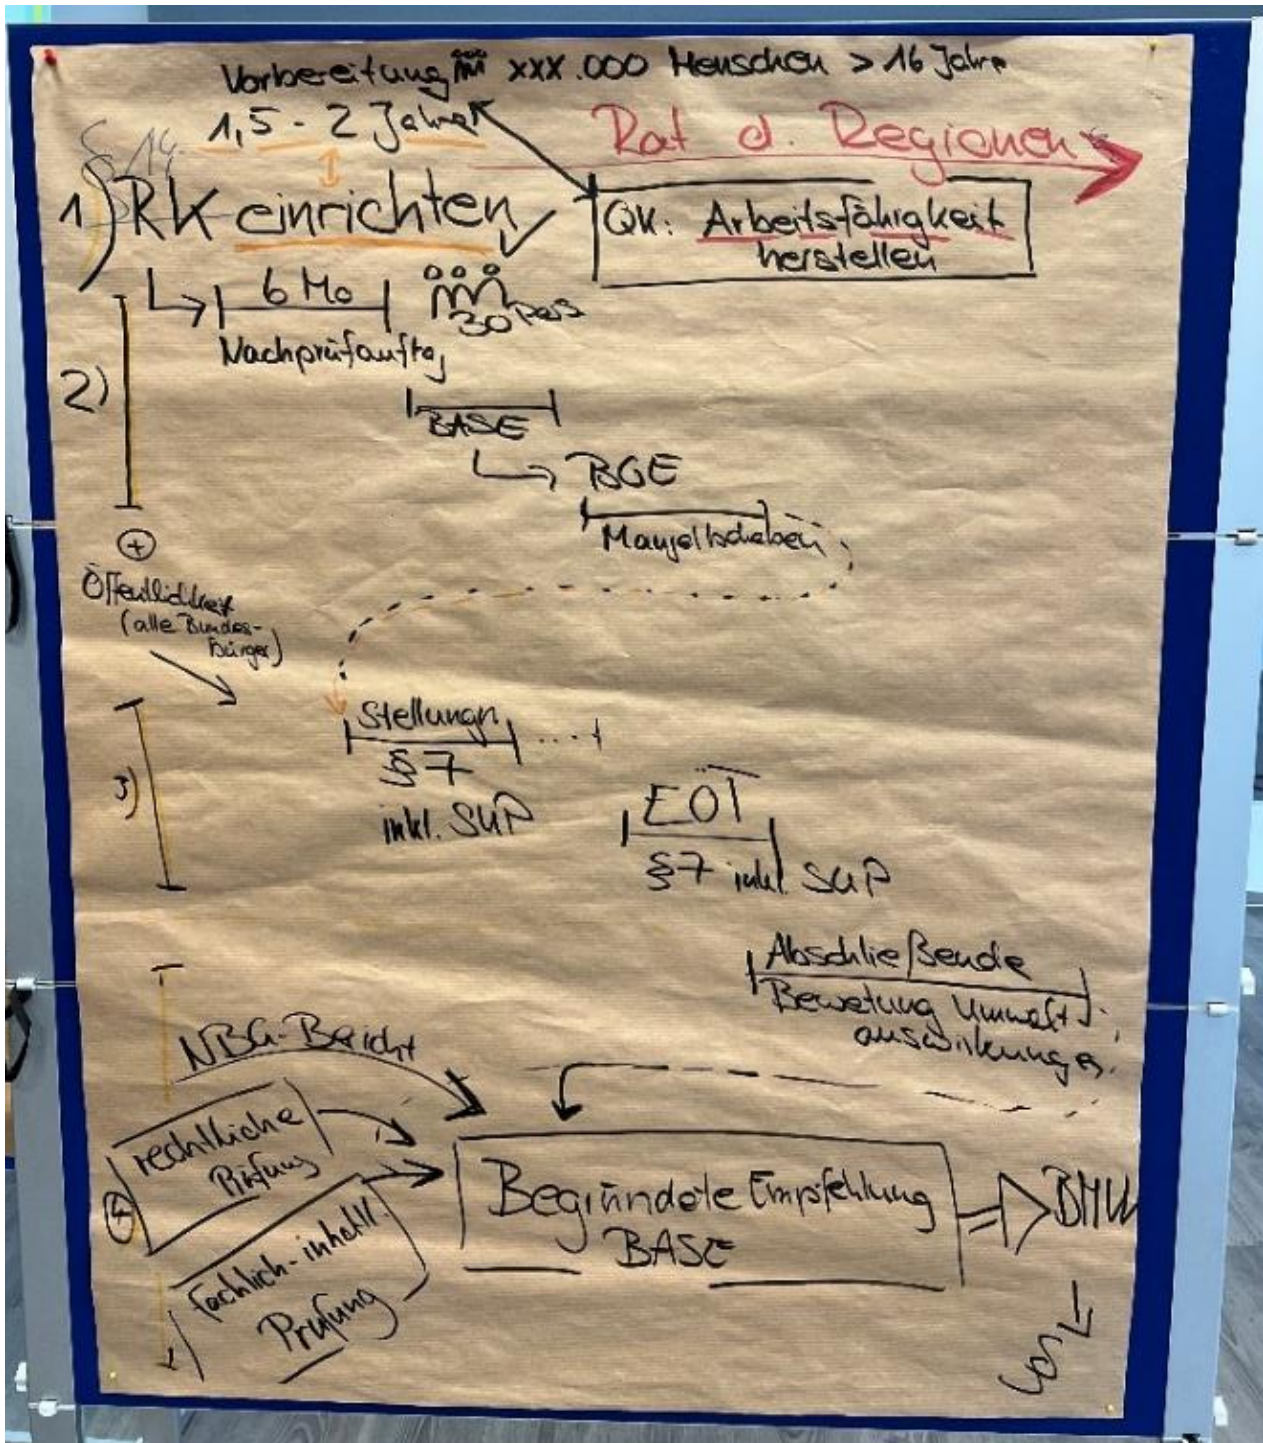 Vorbereitung xxx.000 Menschen > 16 Jahre
1,5 - 2 Jahre
Rat d. Regionen
1) RK einrichten
QK: Arbeitsfähigkeit
herstellen
6 Mo
30 Pers
Nachprüfauftrg
2)
BASE
BGE
Mangel beheben
+
Öffentlichkeit
(alle Bundes-
Bürger)
Stellungn
§7
inkl. SUP
3)
EÖT
§7 inkl. SUP
Abschließende
Bewetung Umwelt-
auswirkungen
NBG-Bericht
rechtliche
Prüfung
4
Begründete Empfehlung
BASE
BMU
fachlich-inhaltl.
Prüfung